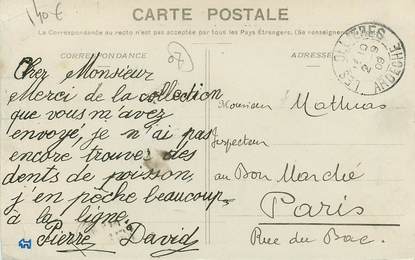 140€
CARTE POSTALE
La Correspondance au recto n'est pas acceptée par tous les Pays Étrangers. (Se renseigner
CORRESPONDANCE
ADRESSE
LES OLLIÈRES
09
ARDÈCHE
Cher Monsieur
Merci de la collection
que vous m'avez
envoyé, je n'ai pas
encore trouvé des
dents de poisson,
j'en pêche beaucoup
à la ligne.
Pierre David
Monsieur Mathias
Inspecteur
au Bon Marché
Paris
Rue du Bac.